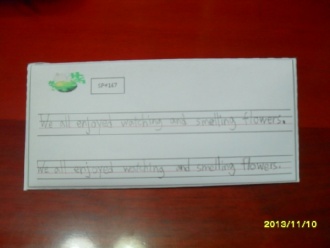 SP4167
We all enjoyed watching and smelling flowers.
We all enjoyed watching and smelling flowers.
2013/11/10